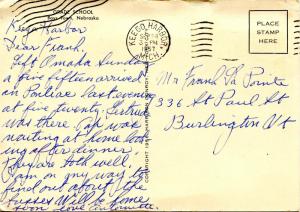 GRADE SCHOOL
Boys Town, Nebraska
Keego Harbor
Dear Frank,
Left Omaha Sunday
a five fifteen arrived
in Pontiac last evening
at five twenty. Gertrude
was there. Pap was
waiting at home look-
ing after dinner.
They are both well.
I am on my way to
find out about the
Will be home
soon love
KEEGO HARBOR
MICH.
1957
PLACE
STAMP
HERE
Mr Frank La Pointe
336 St Paul St
Burlington Vt